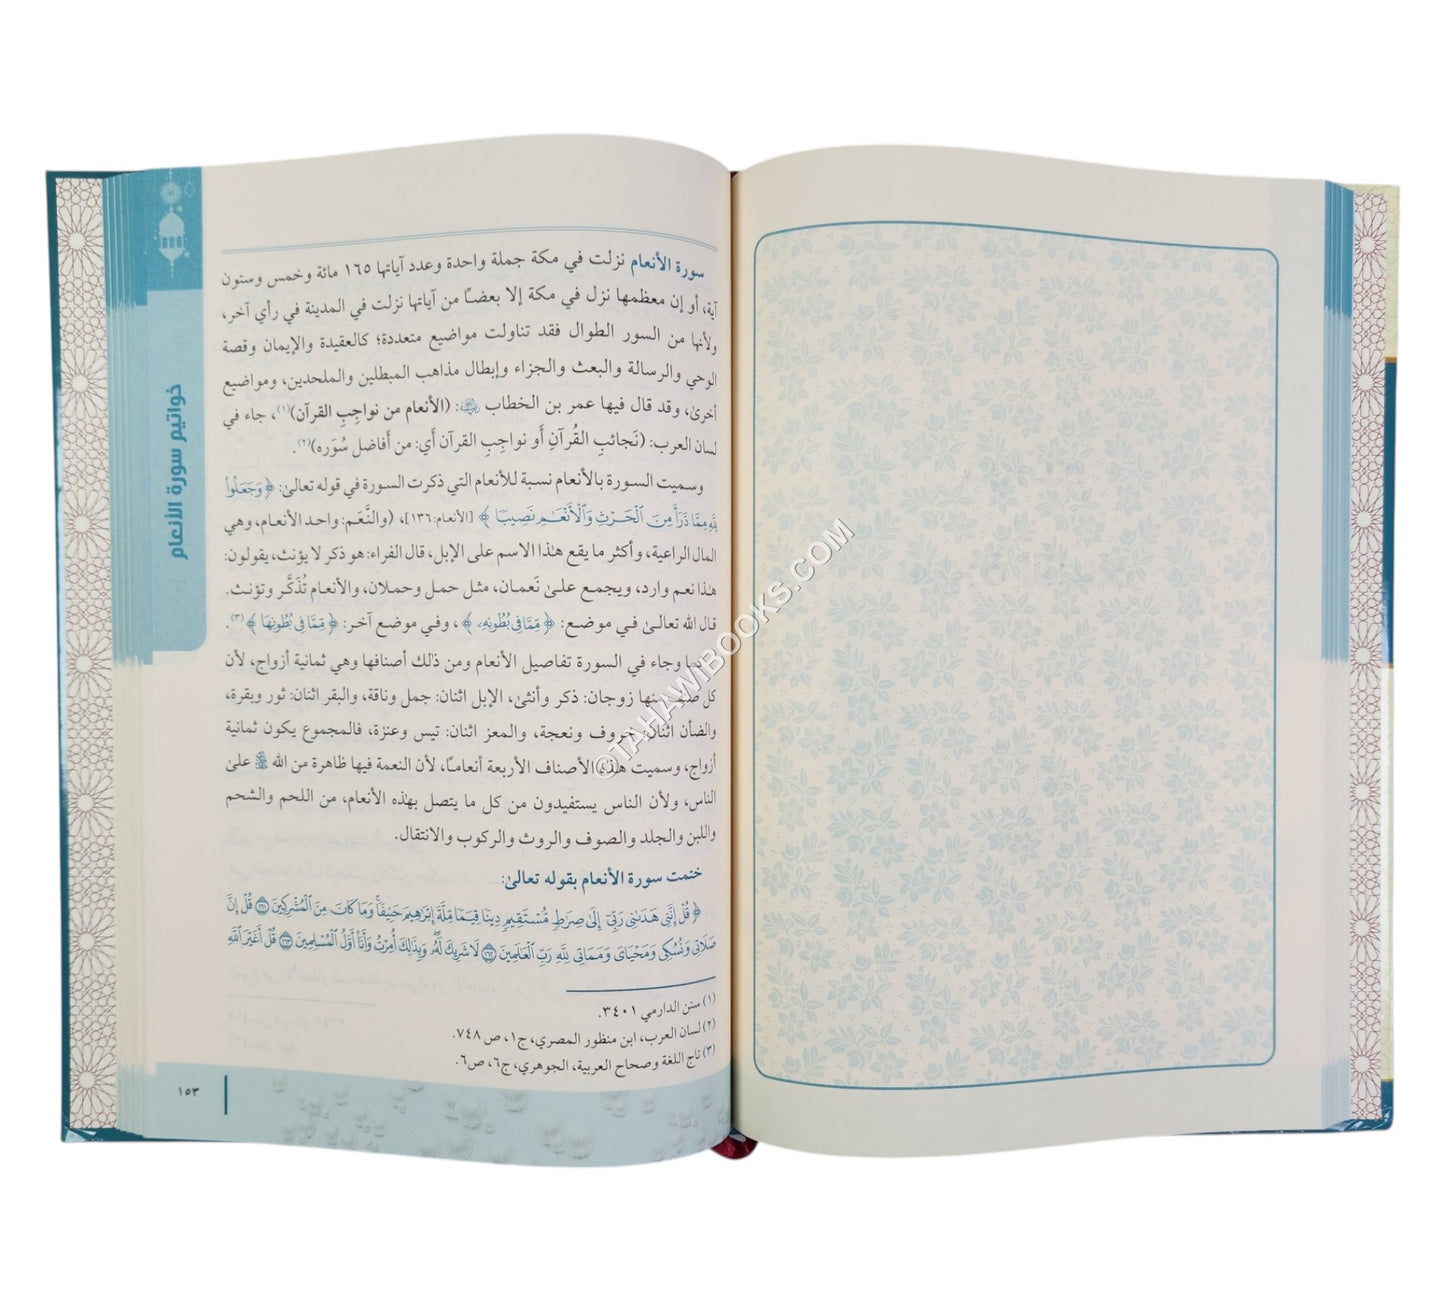 خواتيم سورة الأنعام
سورة الأنعام نزلت في مكة جملة واحدة وعدد آياتها ١٦٥ مائة وخمس وستون
آية، أو إن معظمها نزل في مكة إلا بعضًا من آياتها نزلت في المدينة في رأي آخر،
ولأنها من السور الطوال فقد تناولت مواضيع متعددة؛ كالعقيدة والإيمان وقصة
الوحي والرسالة والبعث والجزاء وإبطال مذاهب المبطلين والملحدين، ومواضيع
أخرىٰ، وقد قال فيها عمر بن الخطاب رضي الله عنه: (الأنعام من نواجِبِ القرآن)(١)، جاء في
لسان العرب: (نَجائبِ القُرآنِ أَو نواجِبِ القرآن أَي: من أَفاضل سُوَره)(٢).
وسميت السورة بالأنعام نسبة للأنعام التي ذكرت السورة في قوله تعالىٰ: ﴿ وَجَعَلُوا۟
لِلَّهِ مِمَّا ذَرَأَ مِنَ ٱلْحَرْثِ وَٱلْأَنْعَـٰمِ نَصِيبًا ﴾ [الأنعام: ١٣٦]، (والنَّعَم: واحد الأنعام، وهي
المال الراعية، وأكثر ما يقع هـٰذا الاسم على الإبل، قال الفراء: هو ذكر لا يؤنث، يقولون:
هـٰذا نعم وارد، ويجمع علىٰ نَعمان، مثل حمل وحملان، والأنعام تُذكَّر وتؤنث.
قال الله تعالىٰ في موضع: ﴿ مِّمَّا فِى بُطُونِهِۦ ﴾، وفي موضع آخر: ﴿ مِّمَّا فِى بُطُونِهَا ﴾(٣).
كما وجاء في السورة تفاصيل الأنعام ومن ذلك أصنافها وهي ثمانية أزواج، لأن
كل صنف منها زوجان: ذكر وأنثىٰ، الإبل اثنان: جمل وناقة، والبقر اثنان: ثور وبقرة،
والضأن اثنان: خروف ونعجة، والمعز اثنان: تيس وعنزة، فالمجموع يكون ثمانية
أزواج، وسميت هـٰذه الأصناف الأربعة أنعامًا، لأن النعمة فيها ظاهرة من الله ﷻ علىٰ
الناس، ولأن الناس يستفيدون من كل ما يتصل بهـٰذه الأنعام، من اللحم والشحم
واللبن والجلد والصوف والروث والركوب والانتقال.
ختمت سورة الأنعام بقوله تعالىٰ:
﴿ قُلْ إِنَّنِى هَدَىٰنِى رَبِّىٓ إِلَىٰ صِرَٰطٍ مُّسْتَقِيمٍ دِينًا قِيَمًا مِّلَّةَ إِبْرَٰهِيمَ حَنِيفًا ۚ وَمَا كَانَ مِنَ ٱلْمُشْرِكِينَ ١٦١ قُلْ إِنَّ
صَلَاتِى وَنُسُكِى وَمَحْيَاىَ وَمَمَاتِى لِلَّهِ رَبِّ ٱلْعَـٰلَمِينَ ١٦٢ لَا شَرِيكَ لَهُۥ ۖ وَبِذَٰلِكَ أُمِرْتُ وَأَنَا۠ أَوَّلُ ٱلْمُسْلِمِينَ ١٦٣ قُلْ أَغَيْرَ ٱللَّهِ
(١) سنن الدارمي ٣٤٠١.
(٢) لسان العرب، ابن منظور المصري، ج١، ص٧٤٨.
(٣) تاج اللغة وصحاح العربية، الجوهري، ج٦، ص٦.
١٥٣
©TAHAWIBOOKS.COM